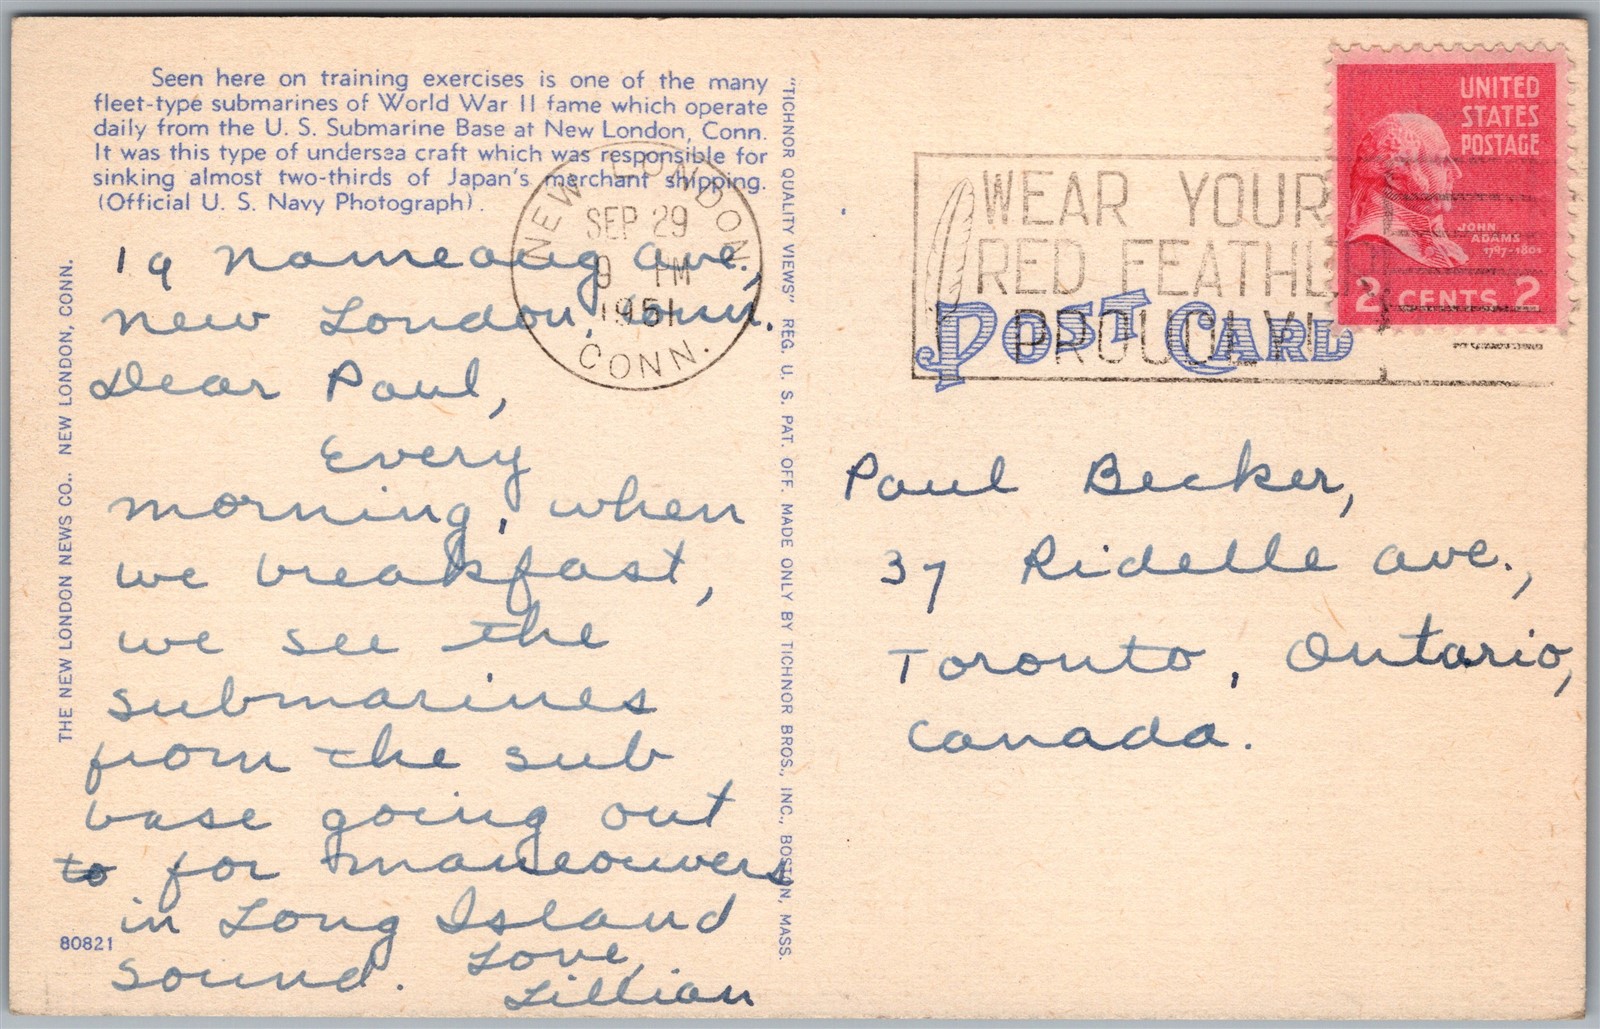 Seen here on training exercises is one of the many
fleet-type submarines of World War II fame which operate
daily from the U. S. Submarine Base at New London, Conn.
It was this type of undersea craft which was responsible for
sinking almost two-thirds of Japan's merchant shipping.
(Official U. S. Navy Photograph).
19 Nameaug Ave.,
New London, Conn.
Dear Paul,
Every
morning, when
we breakfast,
we see the
submarines
from the sub
base going out
to for maneouvers
in Long Island
Sound. Love,
Lillian
THE NEW LONDON NEWS CO., NEW LONDON, CONN.
80821
"TICHNOR QUALITY VIEWS" REG. U. S. PAT. OFF. MADE ONLY BY TICHNOR BROS., INC., BOSTON, MASS.
NEW LONDON
SEP 29
9 PM
1951
CONN.
WEAR YOUR
RED FEATHER
PROUDLY!
POST CARD
UNITED
STATES
POSTAGE
JOHN
ADAMS
1797-1801
2 CENTS 2
Paul Becker,
37 Ridelle Ave.,
Toronto, Ontario,
Canada.